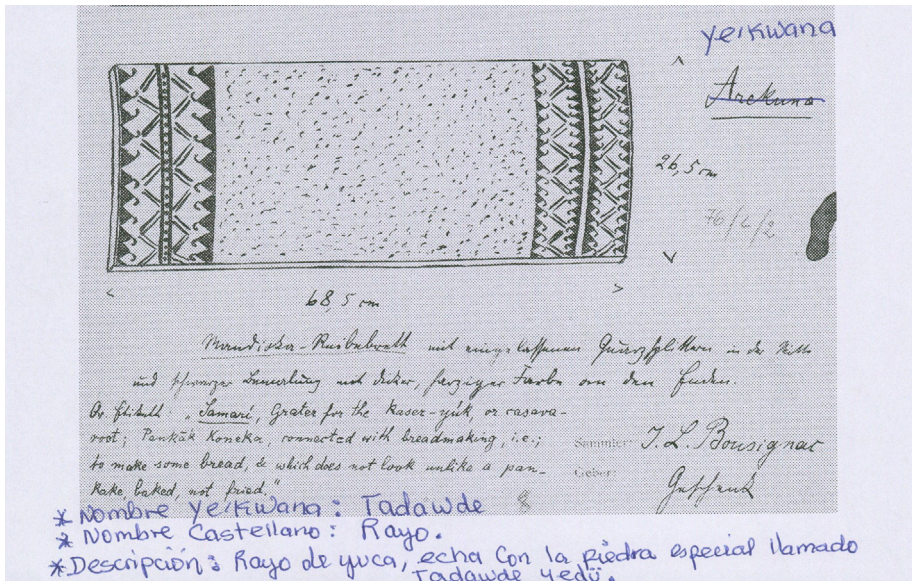 Yekwana
Arekuna
26,5 cm
76/2/2
68,5 cm
Mandioka-Reibebrett mit eingelassenen Quarzsplittern in der Mitte
und schwarzer Bemalung mit dicker, harziger Farbe an den Enden.
Or. Etikett: "Samarí, Grater for the Kaser-yúk, or casava-
root; Pankák Koneka, connected with breadmaking, i.e.;
to make some bread, & which does not look unlike a pan-
kake, baked, not fried."
Sammler: J. L. Bousignac
Geber: Geschenk
8
* Nombre Yekwana: Tadawde
* Nombre Castellano: Rayo.
* Descripción: Rayo de yuca, echa con la piedra especial llamado
Tadawde yedü.